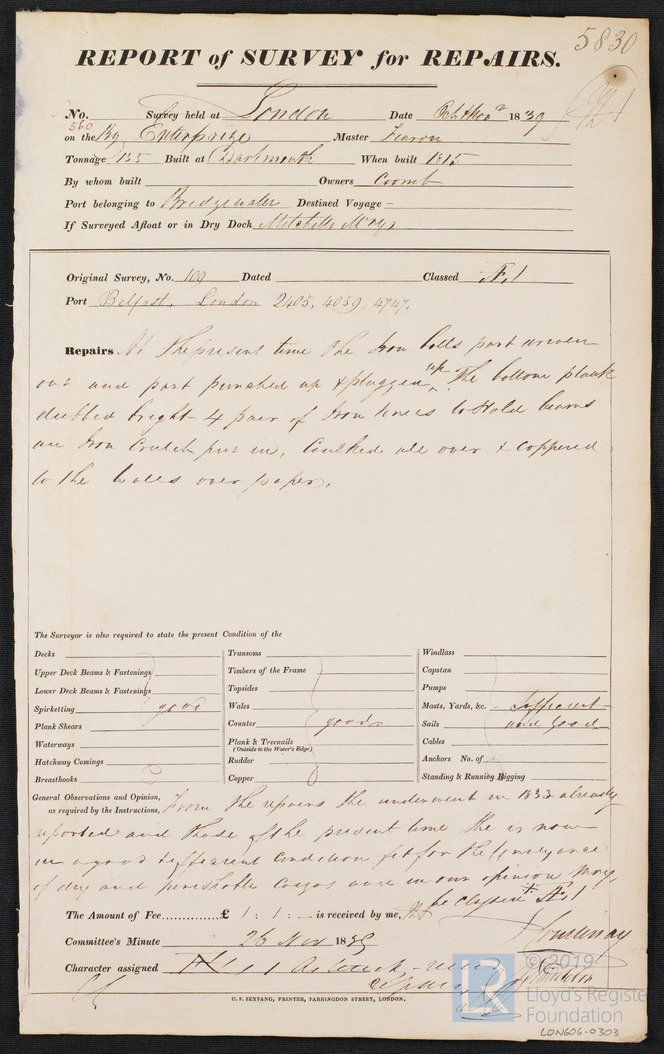 5830
REPORT of SURVEY for REPAIRS.
No. 560 Survey held at London Date Oct & Nov 1839
on the Bg Enterprize Master Fearon
Tonnage 135 Built at Dartmouth When built 1815
By whom built Owners Coomb
Port belonging to Bridgewater Destined Voyage -
If Surveyed Afloat or in Dry Dock Mitchells
Original Survey, No. 109 Dated Classed Æ 1
Port Belfast, London 2405, 4059, 4747,
Repairs At the present time the Iron bolts part driven
out and part punched up & plugged up The bottom plank
dubbed bright 4 pair of Iron knees to Hold beams
an Iron Crutch put in, Caulked all over & coppered
to the wales over paper,
The Surveyor is also required to state the present Condition of the
Decks
Upper Deck Beams & Fastenings
Lower Deck Beams & Fastenings
Spirketting good
Plank Shears
Waterways
Hatchway Comings
Breasthooks
Transoms
Timbers of the Frame
Topsides
Wales
Counter good
Plank & Treenails
(Outside to the Water's Edge)
Rudder
Copper
Windlass
Capstan
Pumps
Masts, Yards, &c. Sufficient
Sails and good
Cables
Anchors No. of
Standing & Running Rigging
General Observations and Opinion, From the repairs she underwent in 1833 already
as required by the Instructions,
reported and those of the present time she is now
in a good & efficient condition fit for the Conveyance
of dry and perishable cargos and in our opinion may
be classed Æ 1
The Amount of Fee..............£ 1 : 1 : - is received by me,
Committee's Minute 26 Nov 1839
Character assigned
C. F. SEYFANG, PRINTER, FARRINGDON STREET, LONDON.
LR
© 2019
Lloyd's Register
Foundation
LON606-0303